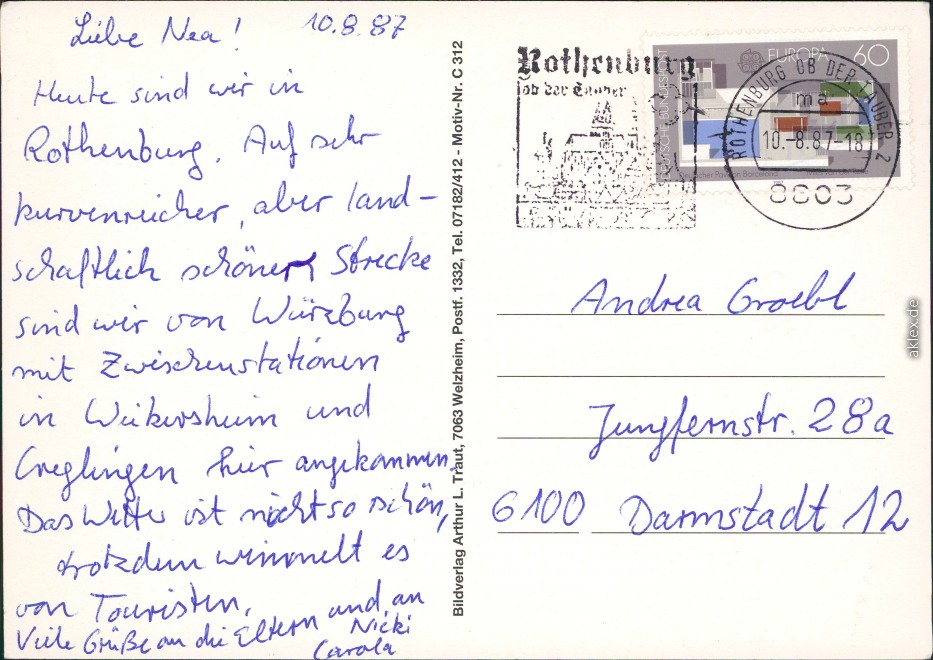 Liebe Nea! 10.8.87
Heute sind wir in
Rothenburg. Auf sehr
kurvenreicher, aber land-
schaftlich schöner Strecke
sind wir von Würzburg
mit Zwischenstationen
in Weikersheim und
Creglingen hier angekommen.
Das Wetter ist nicht so schön,
trotzdem wimmelt es
von Touristen.
Viele Grüße an die Eltern und an
Nicki
Carola
Bildverlag Arthur L. Traut, 7063 Welzheim, Postf. 1332, Tel. 07182/412 - Motiv-Nr. C 312
Rothenburg
ob der Tauber
EUROPA 60
DEUTSCHE BUNDESPOST
Deutscher Pavillon Barcelona
ROTHENBURG OB DER TAUBER 2
ma
10.-8.87-18
8803
Andrea Groebl
Jungfernstr. 28a
6100 Darmstadt 12
aklex.de